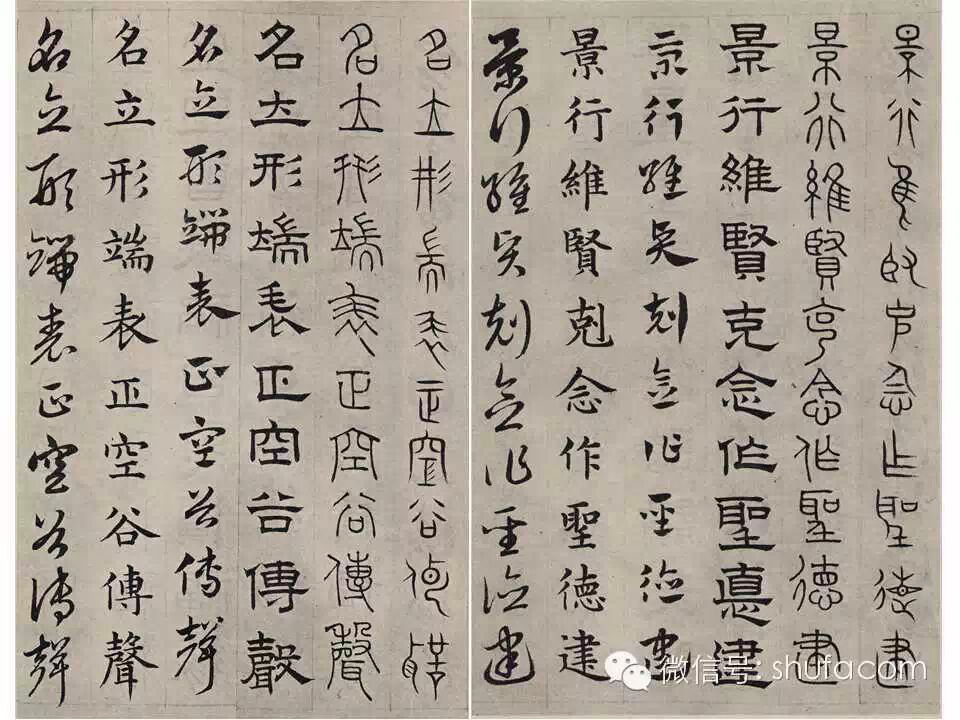 景行隹臤克念乍聖德建
景行維賢克念作聖德建
景行維賢克念作聖悳建
景行維賢剋念作聖德建
景行維賢剋念作聖德建
景行維賢剋念作聖德建
名立形耑表正空谷傳聲
名立形端表正空谷傳聲
名立形端表正空谷傳聲
名立形端表正空谷傳聲
名立形端表正空谷傳聲
名立形端表正空谷傳聲
微信号: shufacom